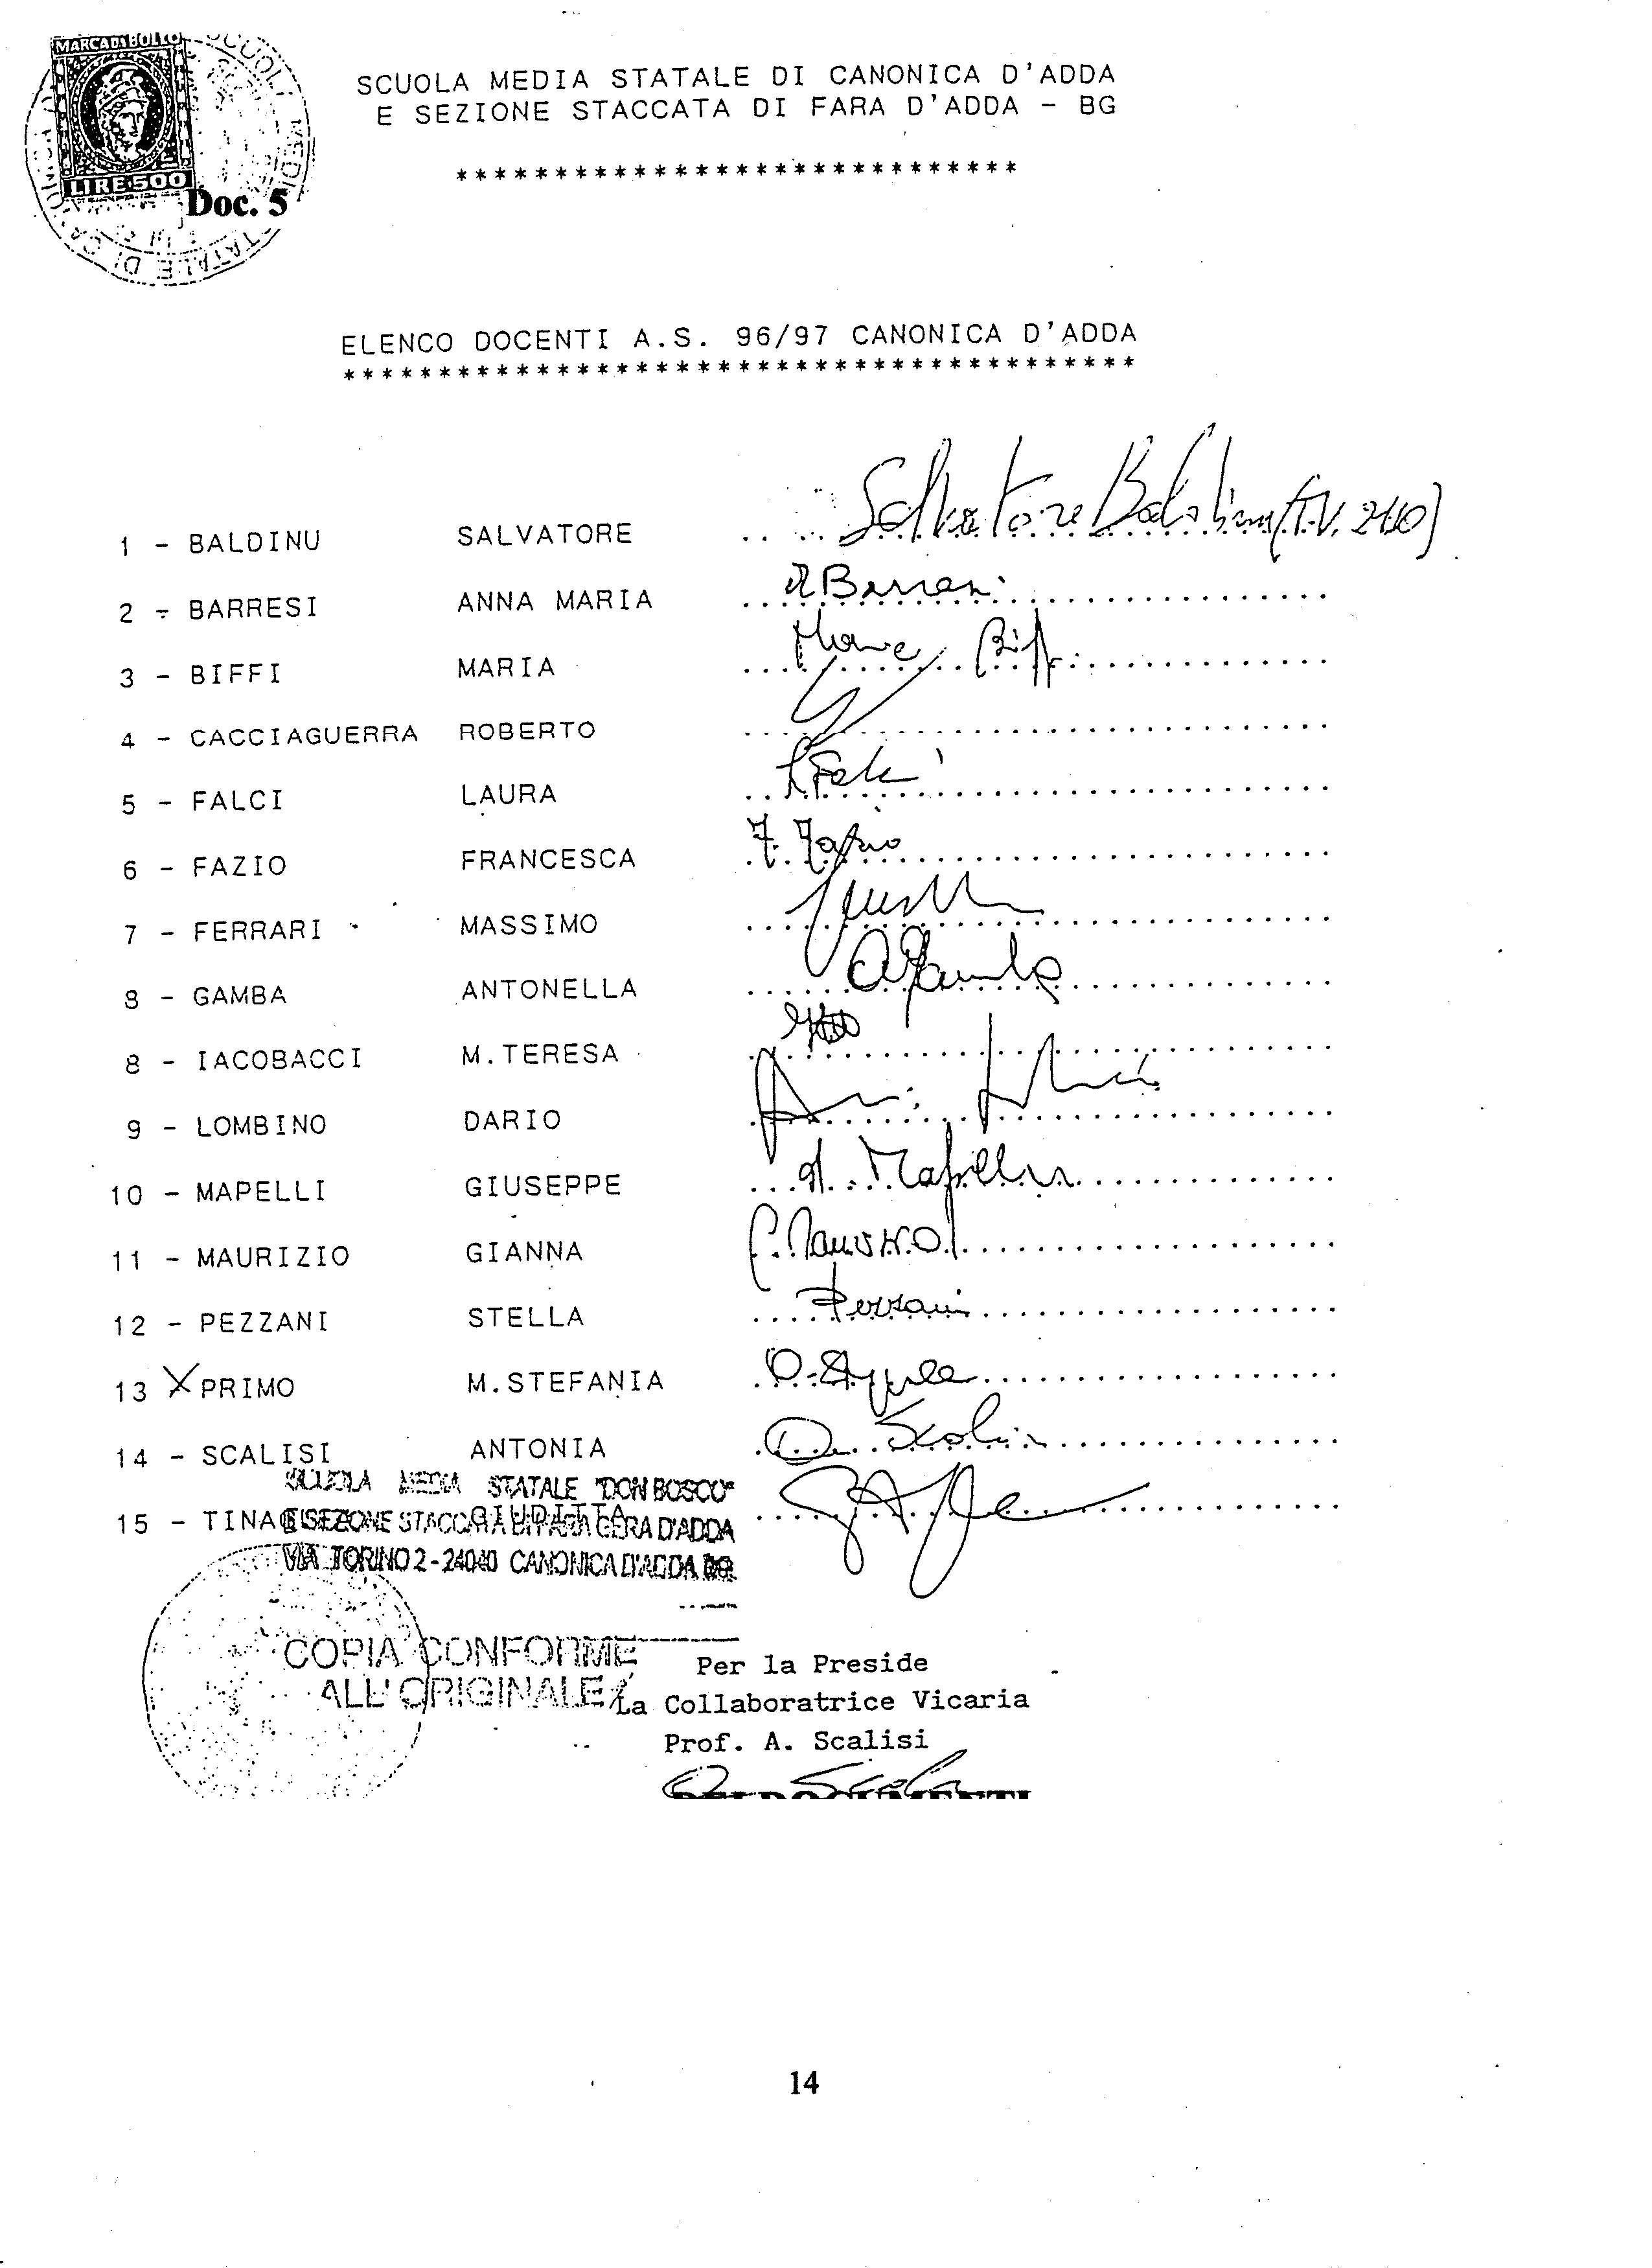 MARCA DA BOLLO
LIRE 500
Doc. 5
SCUOLA MEDIA STATALE DI CANONICA D'ADDA
E SEZIONE STACCATA DI FARA D'ADDA - BG
*****************************
ELENCO DOCENTI A.S. 96/97 CANONICA D'ADDA
*****************************************
1 - BALDINU SALVATORE Salvatore Baldinu
2 - BARRESI ANNA MARIA Barresi
3 - BIFFI MARIA Maria Biffi
4 - CACCIAGUERRA ROBERTO
5 - FALCI LAURA L Falci
6 - FAZIO FRANCESCA F. Fazio
7 - FERRARI MASSIMO
8 - GAMBA ANTONELLA A Gamba
8 - IACOBACCI M.TERESA
9 - LOMBINO DARIO
10 - MAPELLI GIUSEPPE G. Mapelli
11 - MAURIZIO GIANNA
12 - PEZZANI STELLA Pezzani
13 X PRIMO M.STEFANIA
14 - SCALISI ANTONIA Scalisi
SCUOLA MEDIA STATALE "DON BOSCO"
15 - TINA GIUDITTA
E SEZIONE STACCATA DI FARA GERA D'ADDA
VIA TORINO 2 - 24040 CANONICA D'ADDA BG
COPIA CONFORME
ALL'ORIGINALE
Per la Preside
La Collaboratrice Vicaria
Prof. A. Scalisi
14